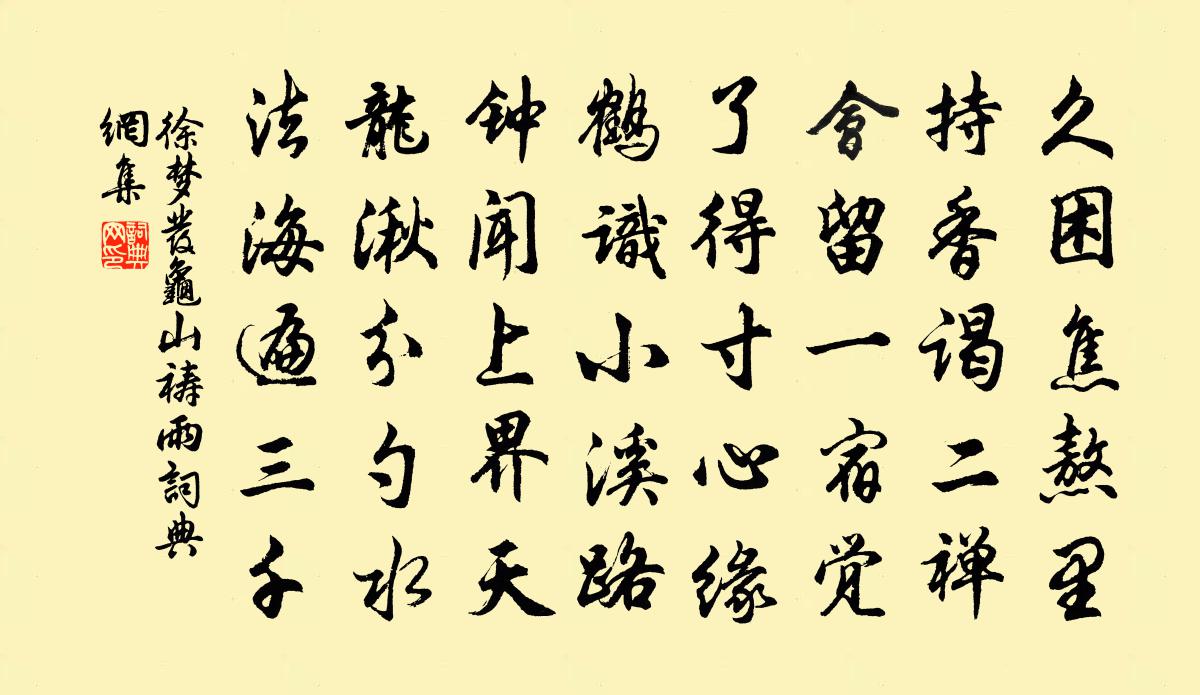 久困焦熬里
持香谒二禅
會留一宿觉
了得寸心缘
鹤識小溪路
钟闻上界天
龍湫分勺水
法海遍三千
徐梦发龜山祷雨詞典
網集
詞典
网印